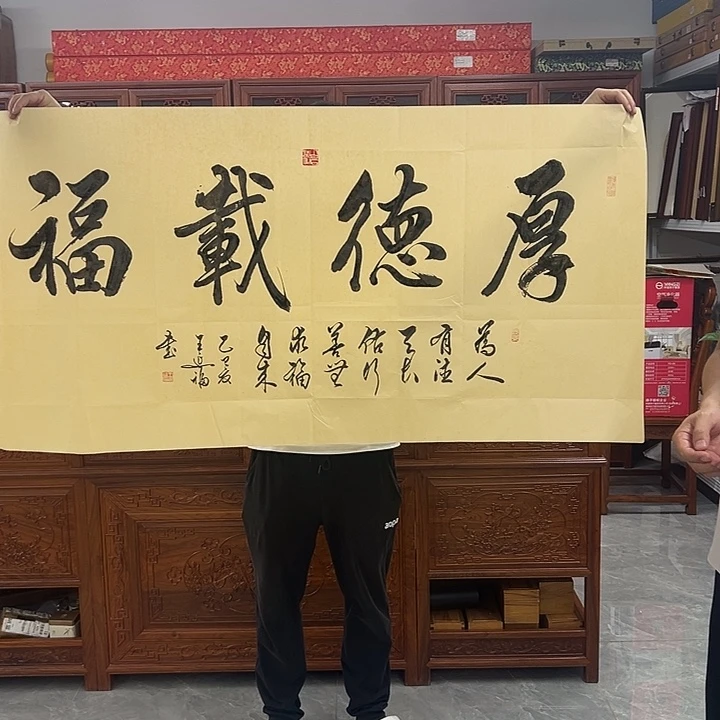 厚德載福
為人
有德
天必
佑行
善無
求福
自来
乙巳夏
王道福
書